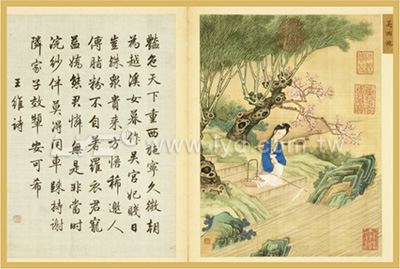 豔色天下重西施寧久微朝
為越溪女暮作吳宮妃賤日
豈殊衆貴來方悟稀邀人
傅脂粉不自著羅衣君寵
益嬌態君憐無是非當時
浣紗伴莫得同車歸持謝
隣家子效顰安可希
王維詩